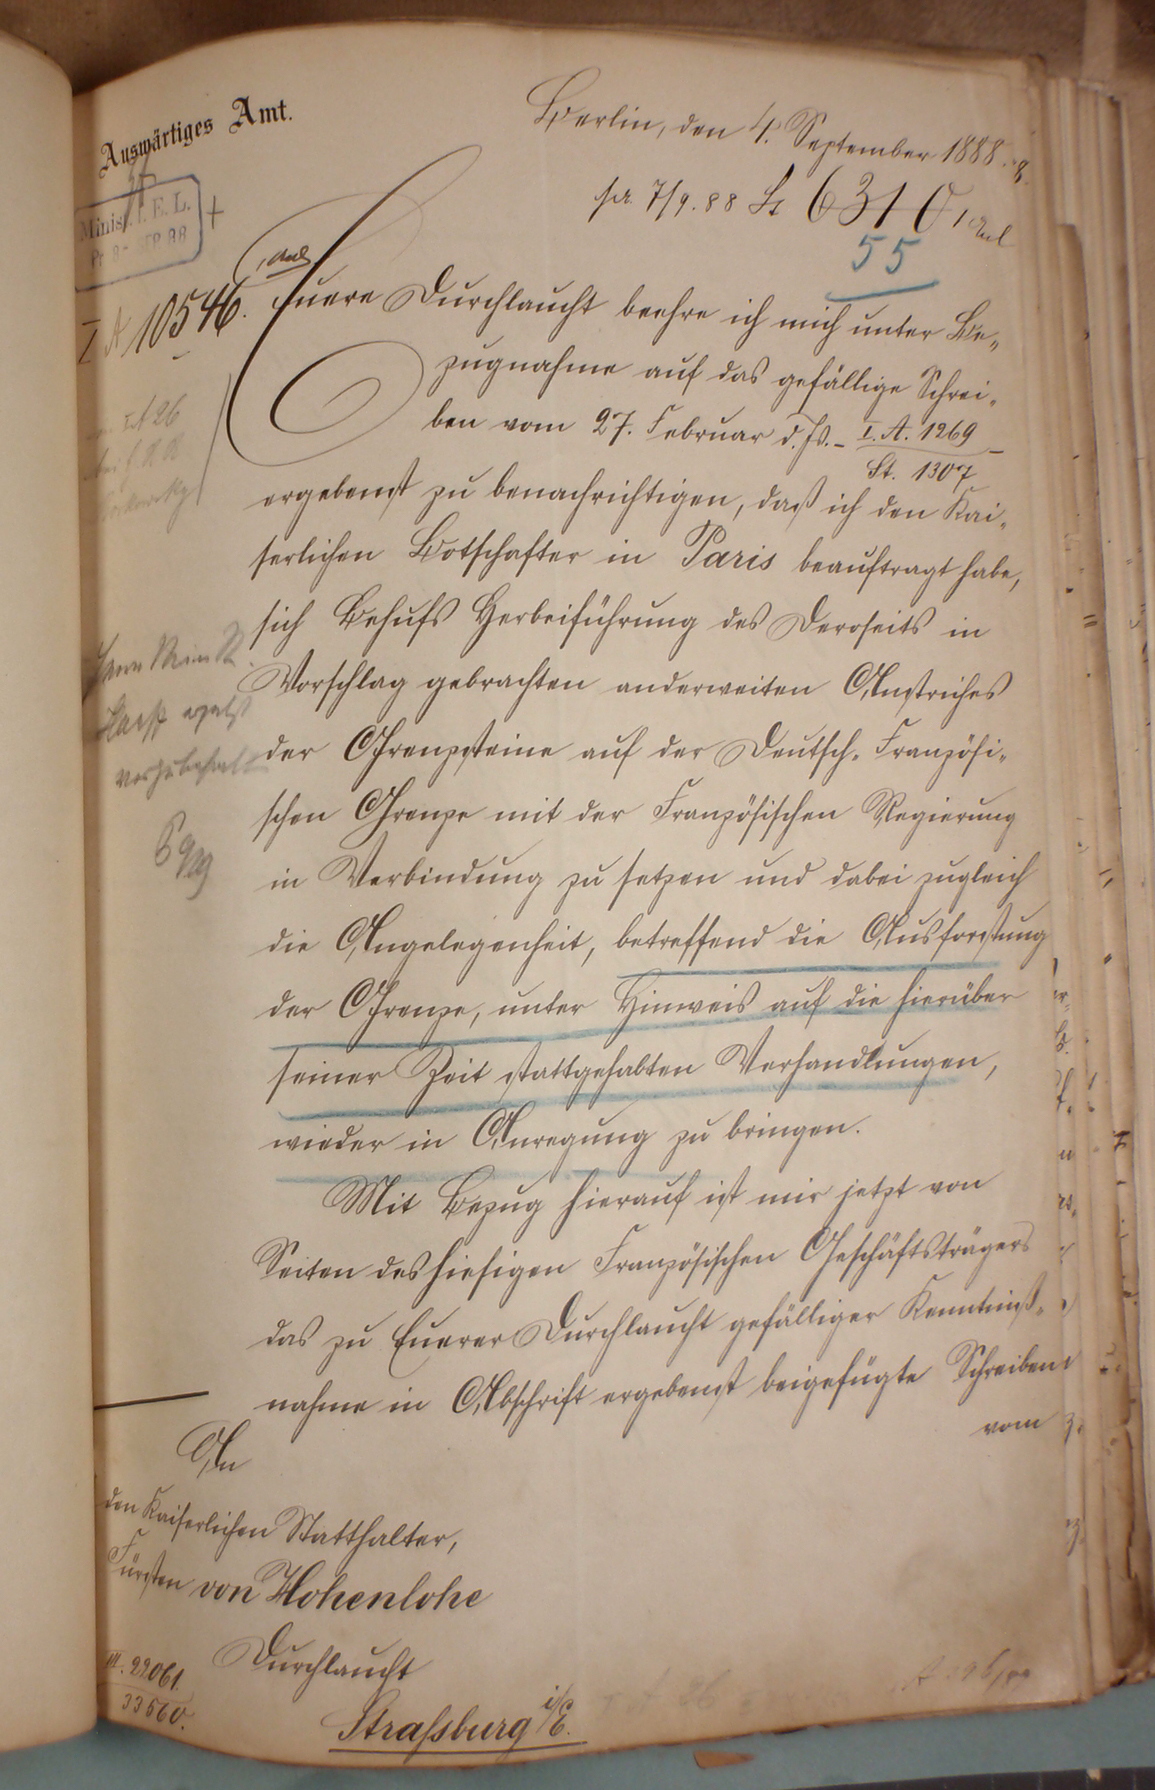 Auswärtiges Amt.
Berlin, den 4. September 1888.
pr. 7/9. 88 St 6310 1 Anl
55
Minist. f. E. L.
Pr 8- SEP 88
I A 10546.
1 Anl
Euere Durchlaucht beehre ich mich unter Be-
zugnahme auf das gefällige Schrei-
ben vom 27. Februar d. Js. - I. A. 1269 -
St. 1307
ergebenst zu benachrichtigen, daß ich den Kai-
serlichen Botschafter in Paris beauftragt habe,
sich Behufs Herbeiführung des Deroseits in
Vorschlag gebrachten anderweiten Anstriches
der Grenzsteine auf der Deutsch-Französi-
schen Grenze mit der Französischen Regierung
in Verbindung zu setzen und dabei zugleich
die Angelegenheit, betreffend die Ausforstung
der Grenze, unter Hinweis auf die hierüber
seiner Zeit stattgehabten Verhandlungen,
wieder in Anregung zu bringen.
Mit Bezug hierauf ist mir jetzt von
Seiten des hiesigen Französischen Geschäftsträgers
das zu Euerer Durchlaucht gefälliger Kenntniß-
nahme in Abschrift ergebenst beigefügte Schreiben
vom
An
den Kaiserlichen Statthalter,
Fürsten von Hohenlohe
Durchlaucht
Straßburg i/E.
III. 22061.
33560.